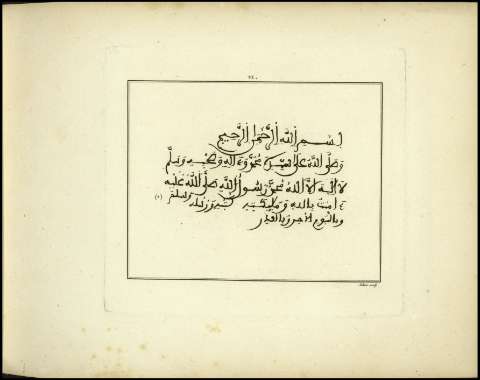 VI.
بسم الله الرحمن الرحيم
وصلى الله على سيدنا محمد وءاله وصحبه وسلم
لا اله الا الله محمد رسول الله صلى الله عليه
وسلم
ءامنت بالله وملئكته وكتبه ورسله
وباليوم الاخر وبالقدر